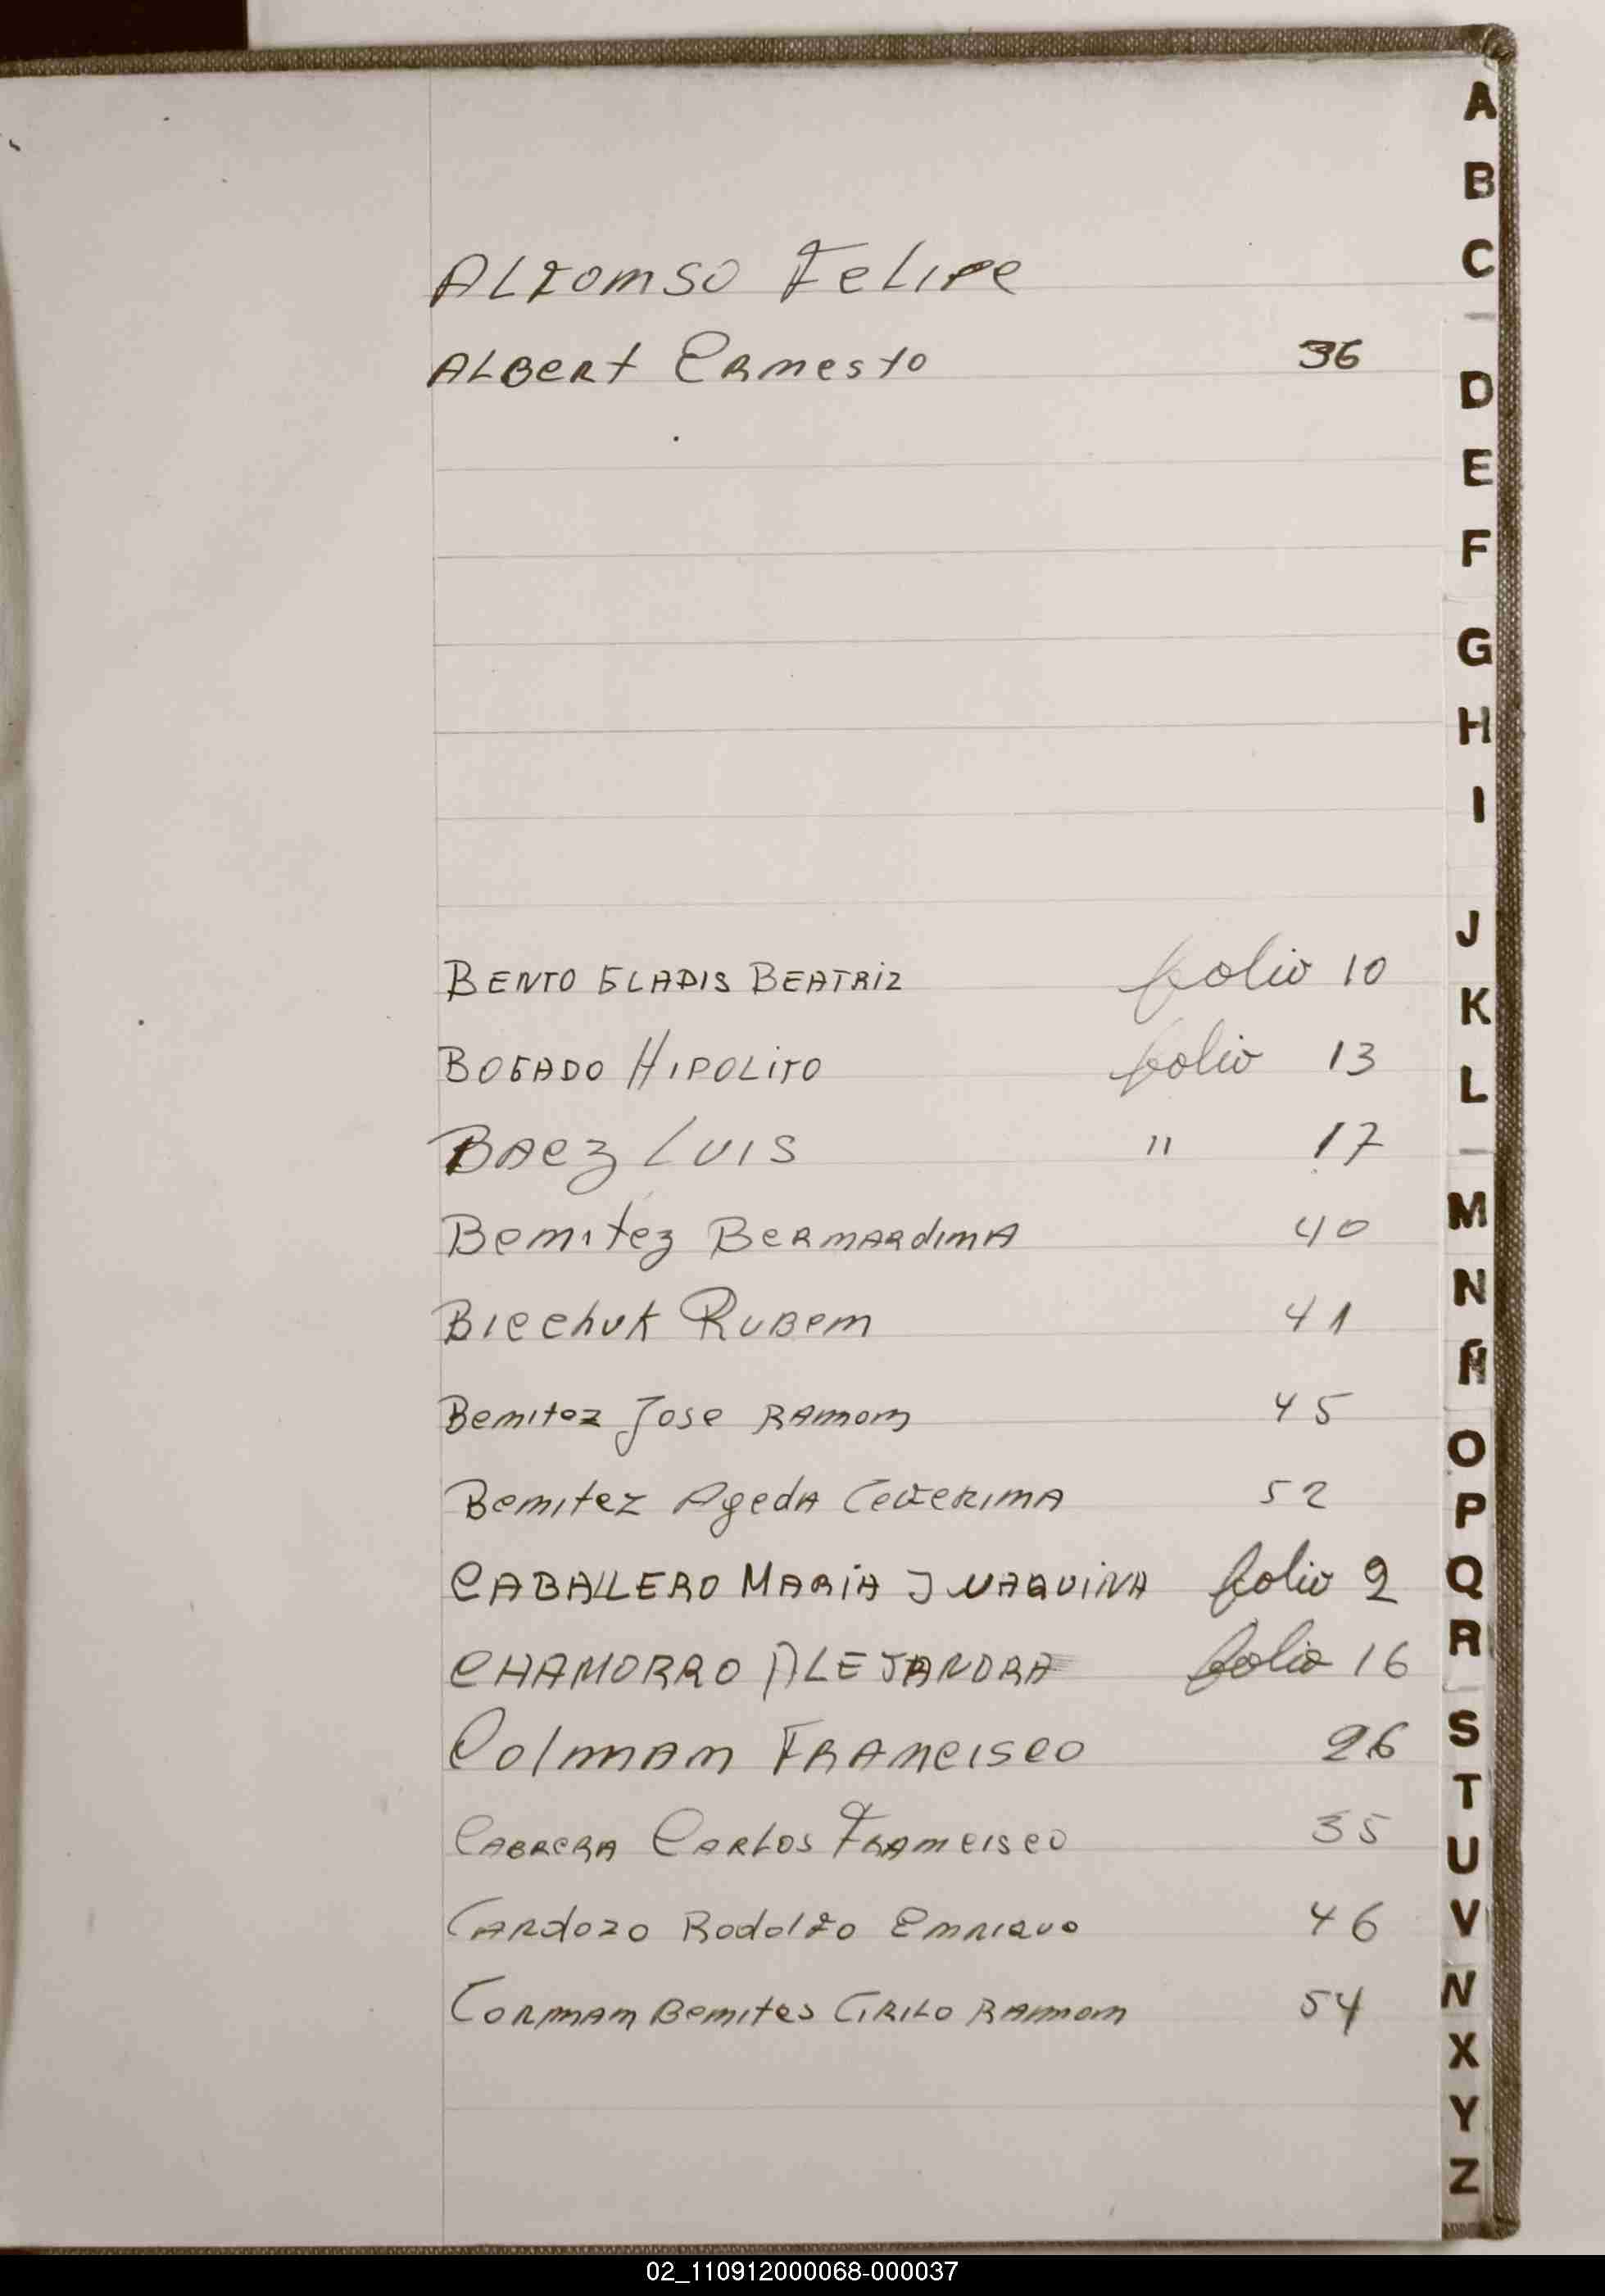 A
B
C
D
E
F
G
H
I
J
K
L
M
N
Ñ
O
P
Q
R
S
T
U
V
X
Y
Z
Alfomso Felipe
Albert Ernesto 36
BENTO GLADIS BEATRIZ folio 10
BOGADO HIPOLITO folio 13
Baez Luis " 17
Bemitez Bermardima 40
Biechuk Rubem 41
Bemitez Jose Ramom 45
Bemitez Ageda 52
CABALLERO MARIA JUAQUINA folio 2
CHAMORRO ALEJANDRA folio 16
Colmam Francisco 26
Cabrera Carlos Framcisco 35
Cardozo Rodolfo Emrique 46
Cormam Bemites Cirilo Ramom 54
02_110912000068-000037